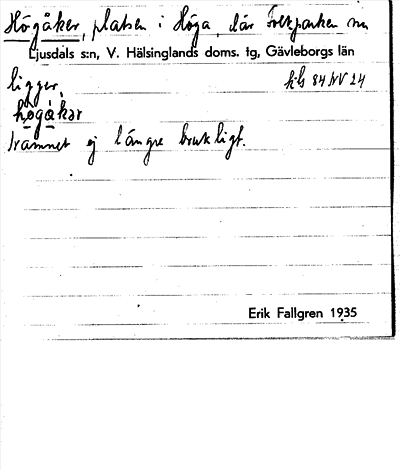 Högåker, platsen i Höga, där Folkparken nu
Ljusdals s:n, V. Hälsinglands doms. tg, Gävleborgs län
ligger, kbl 84 NV 24
högåkər
Namnet ej längre brukligt.
Erik Fallgren 1935